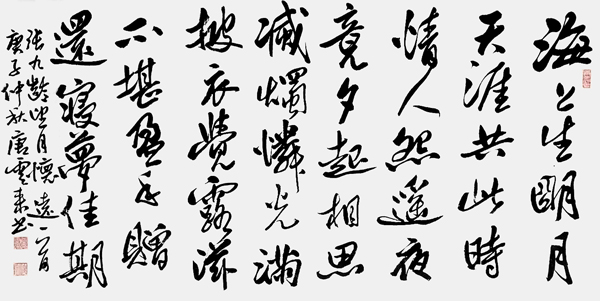 海上生明月
天涯共此時
情人怨遥夜
竟夕起相思
滅燭憐光滿
披衣覺露滋
不堪盈手贈
還寢夢佳期
張九齡望月懷遠一首
庚子仲秋唐雲來書